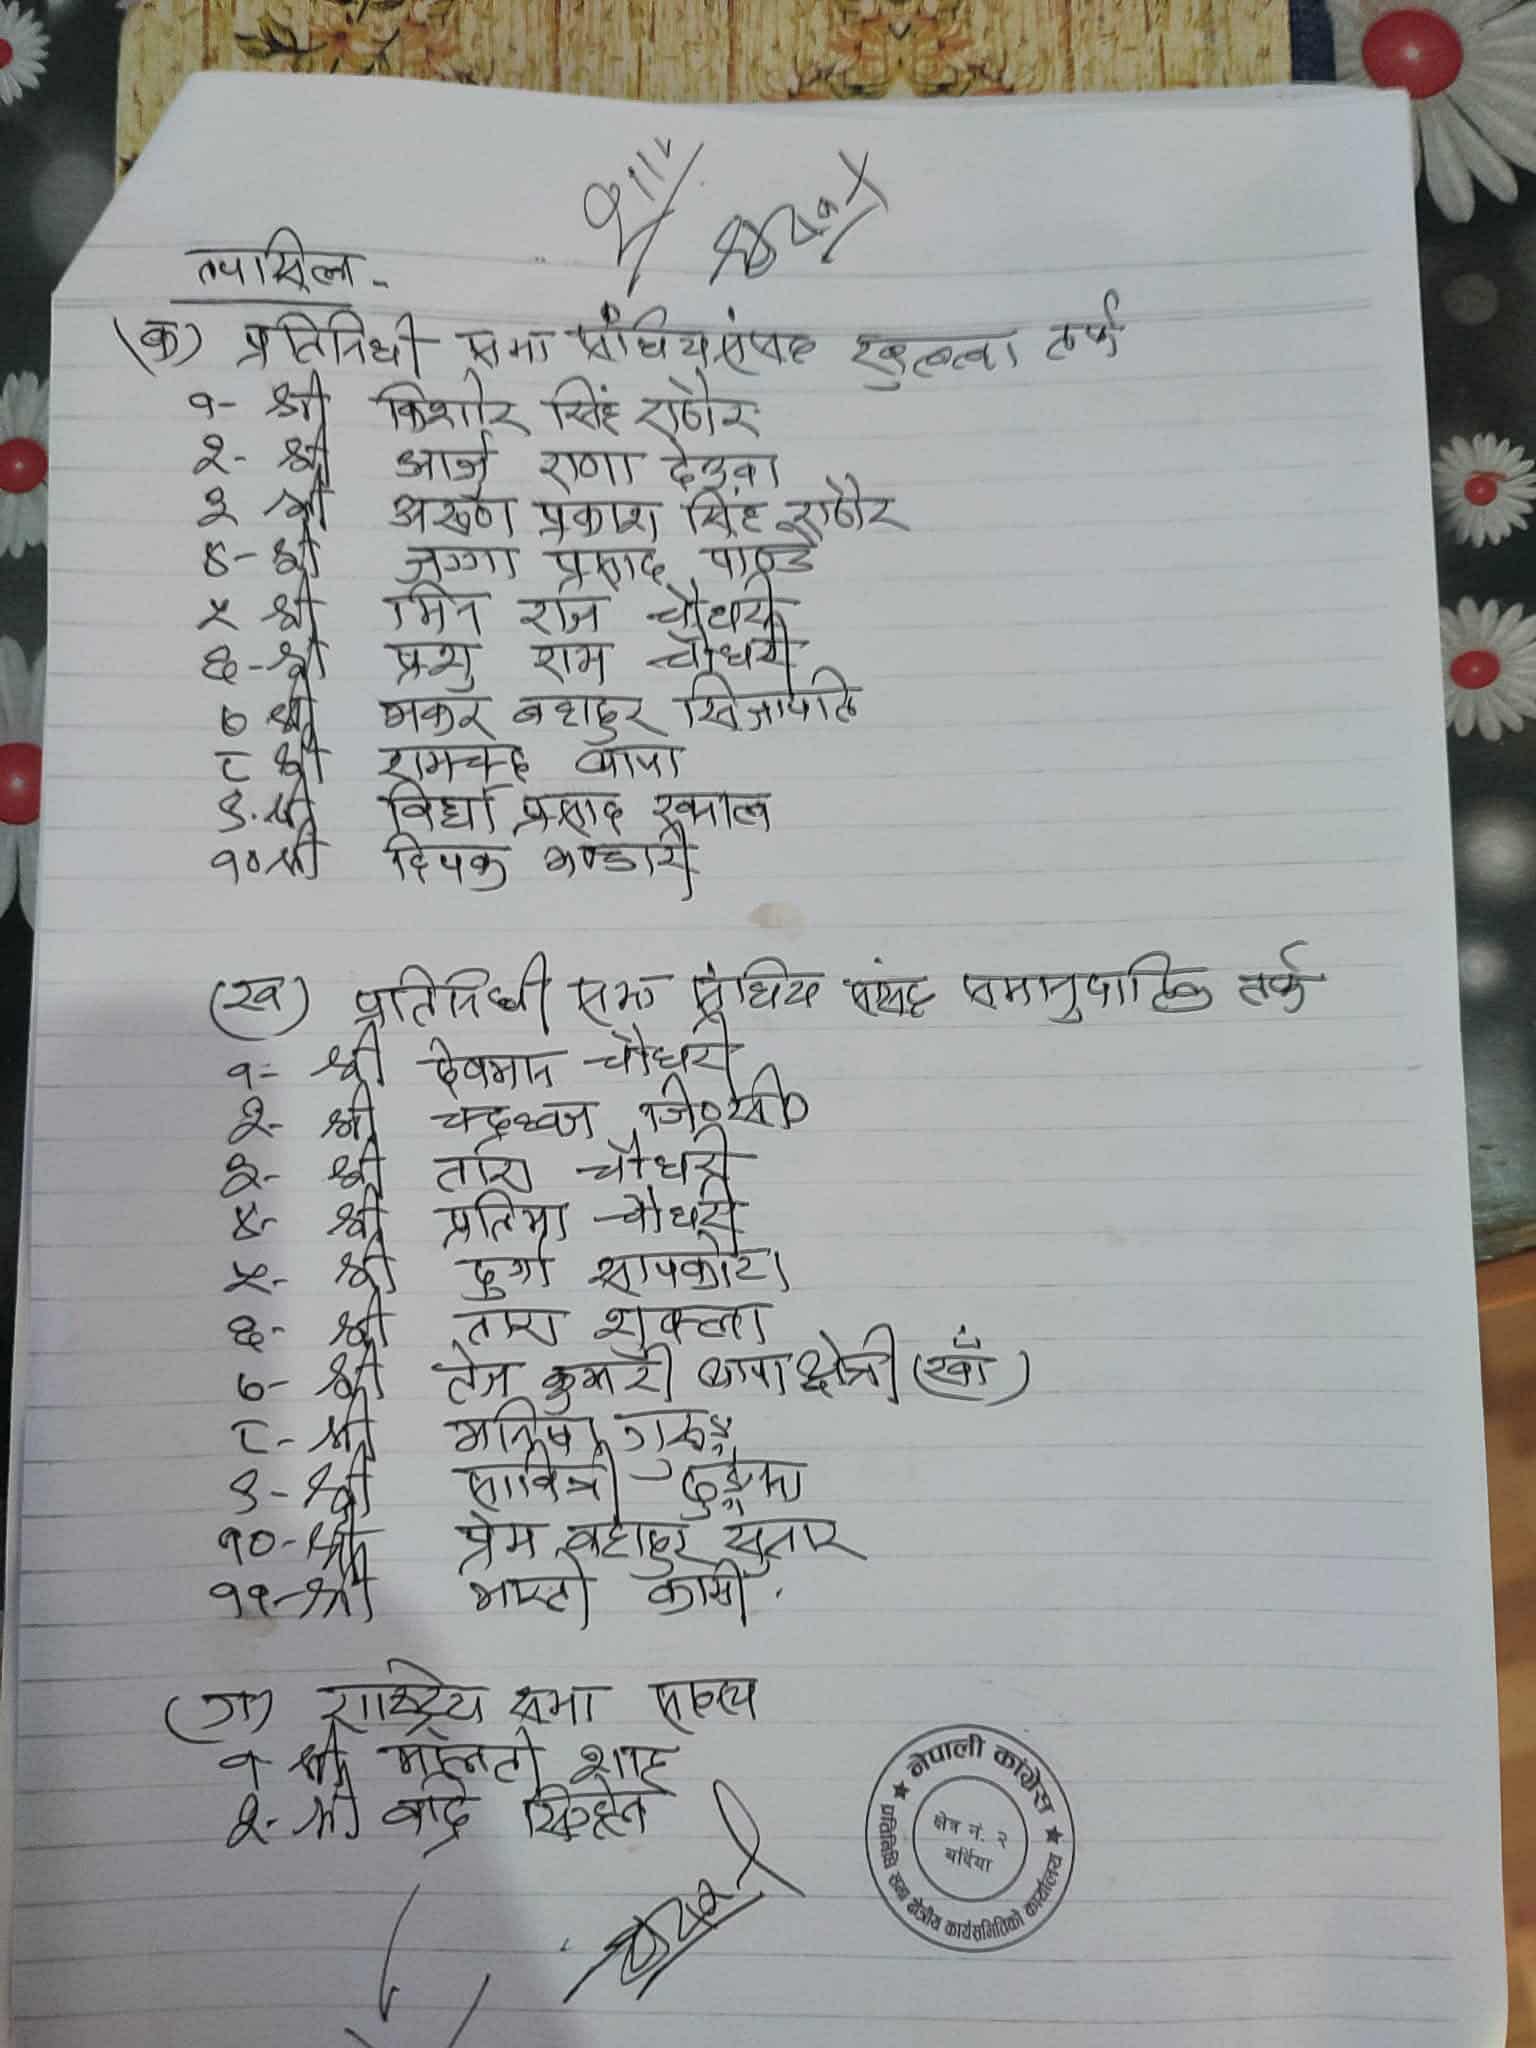 तपासिल -
(क) प्रतिनिधी सभा संघिय संसद खुल्ला तर्फ
१- श्री किशोर सिंह राठौर
२- श्री आर्जु राणा देउवा
३ श्री अरूण प्रकाश सिंह राठौर
४- श्री जग्गा प्रसाद पाण्डे
५ श्री मिन राज चौधरी
६- श्री प्रभु राम चौधरी
७ श्री मकर बहादुर खिजापति
८ श्री रामचन्द्र थापा
९. श्री विर्धा प्रसाद
१० श्री दिपक भण्डारी
(ख) प्रतिनिधी सभा संघिय संसद समानुपातिक तर्फ
१- श्री देवमान चौधरी
२- श्री चन्द्रध्वज जि०सी०
३- श्री तारा चौधरी
४- श्री प्रतिमा चौधरी
५- श्री दुर्गा सापकोटा
६- श्री तारा शुक्ला
७- श्री तेज कुमारी थापा क्षेत्री (खाँ)
८- श्री मनिषा गुरूङ्ग
९- श्री सावित्री
१०- श्री प्रेम बहादुर सुनार
११- श्री
(ग) राष्ट्रिय सभा सदस्य
१ श्री मालती शाह
२- श्री
नेपाली कांग्रेस
क्षेत्र नं. २
बर्दिया
प्रतिनिधि सभा क्षेत्रीय कार्यसमितिको कार्यालय